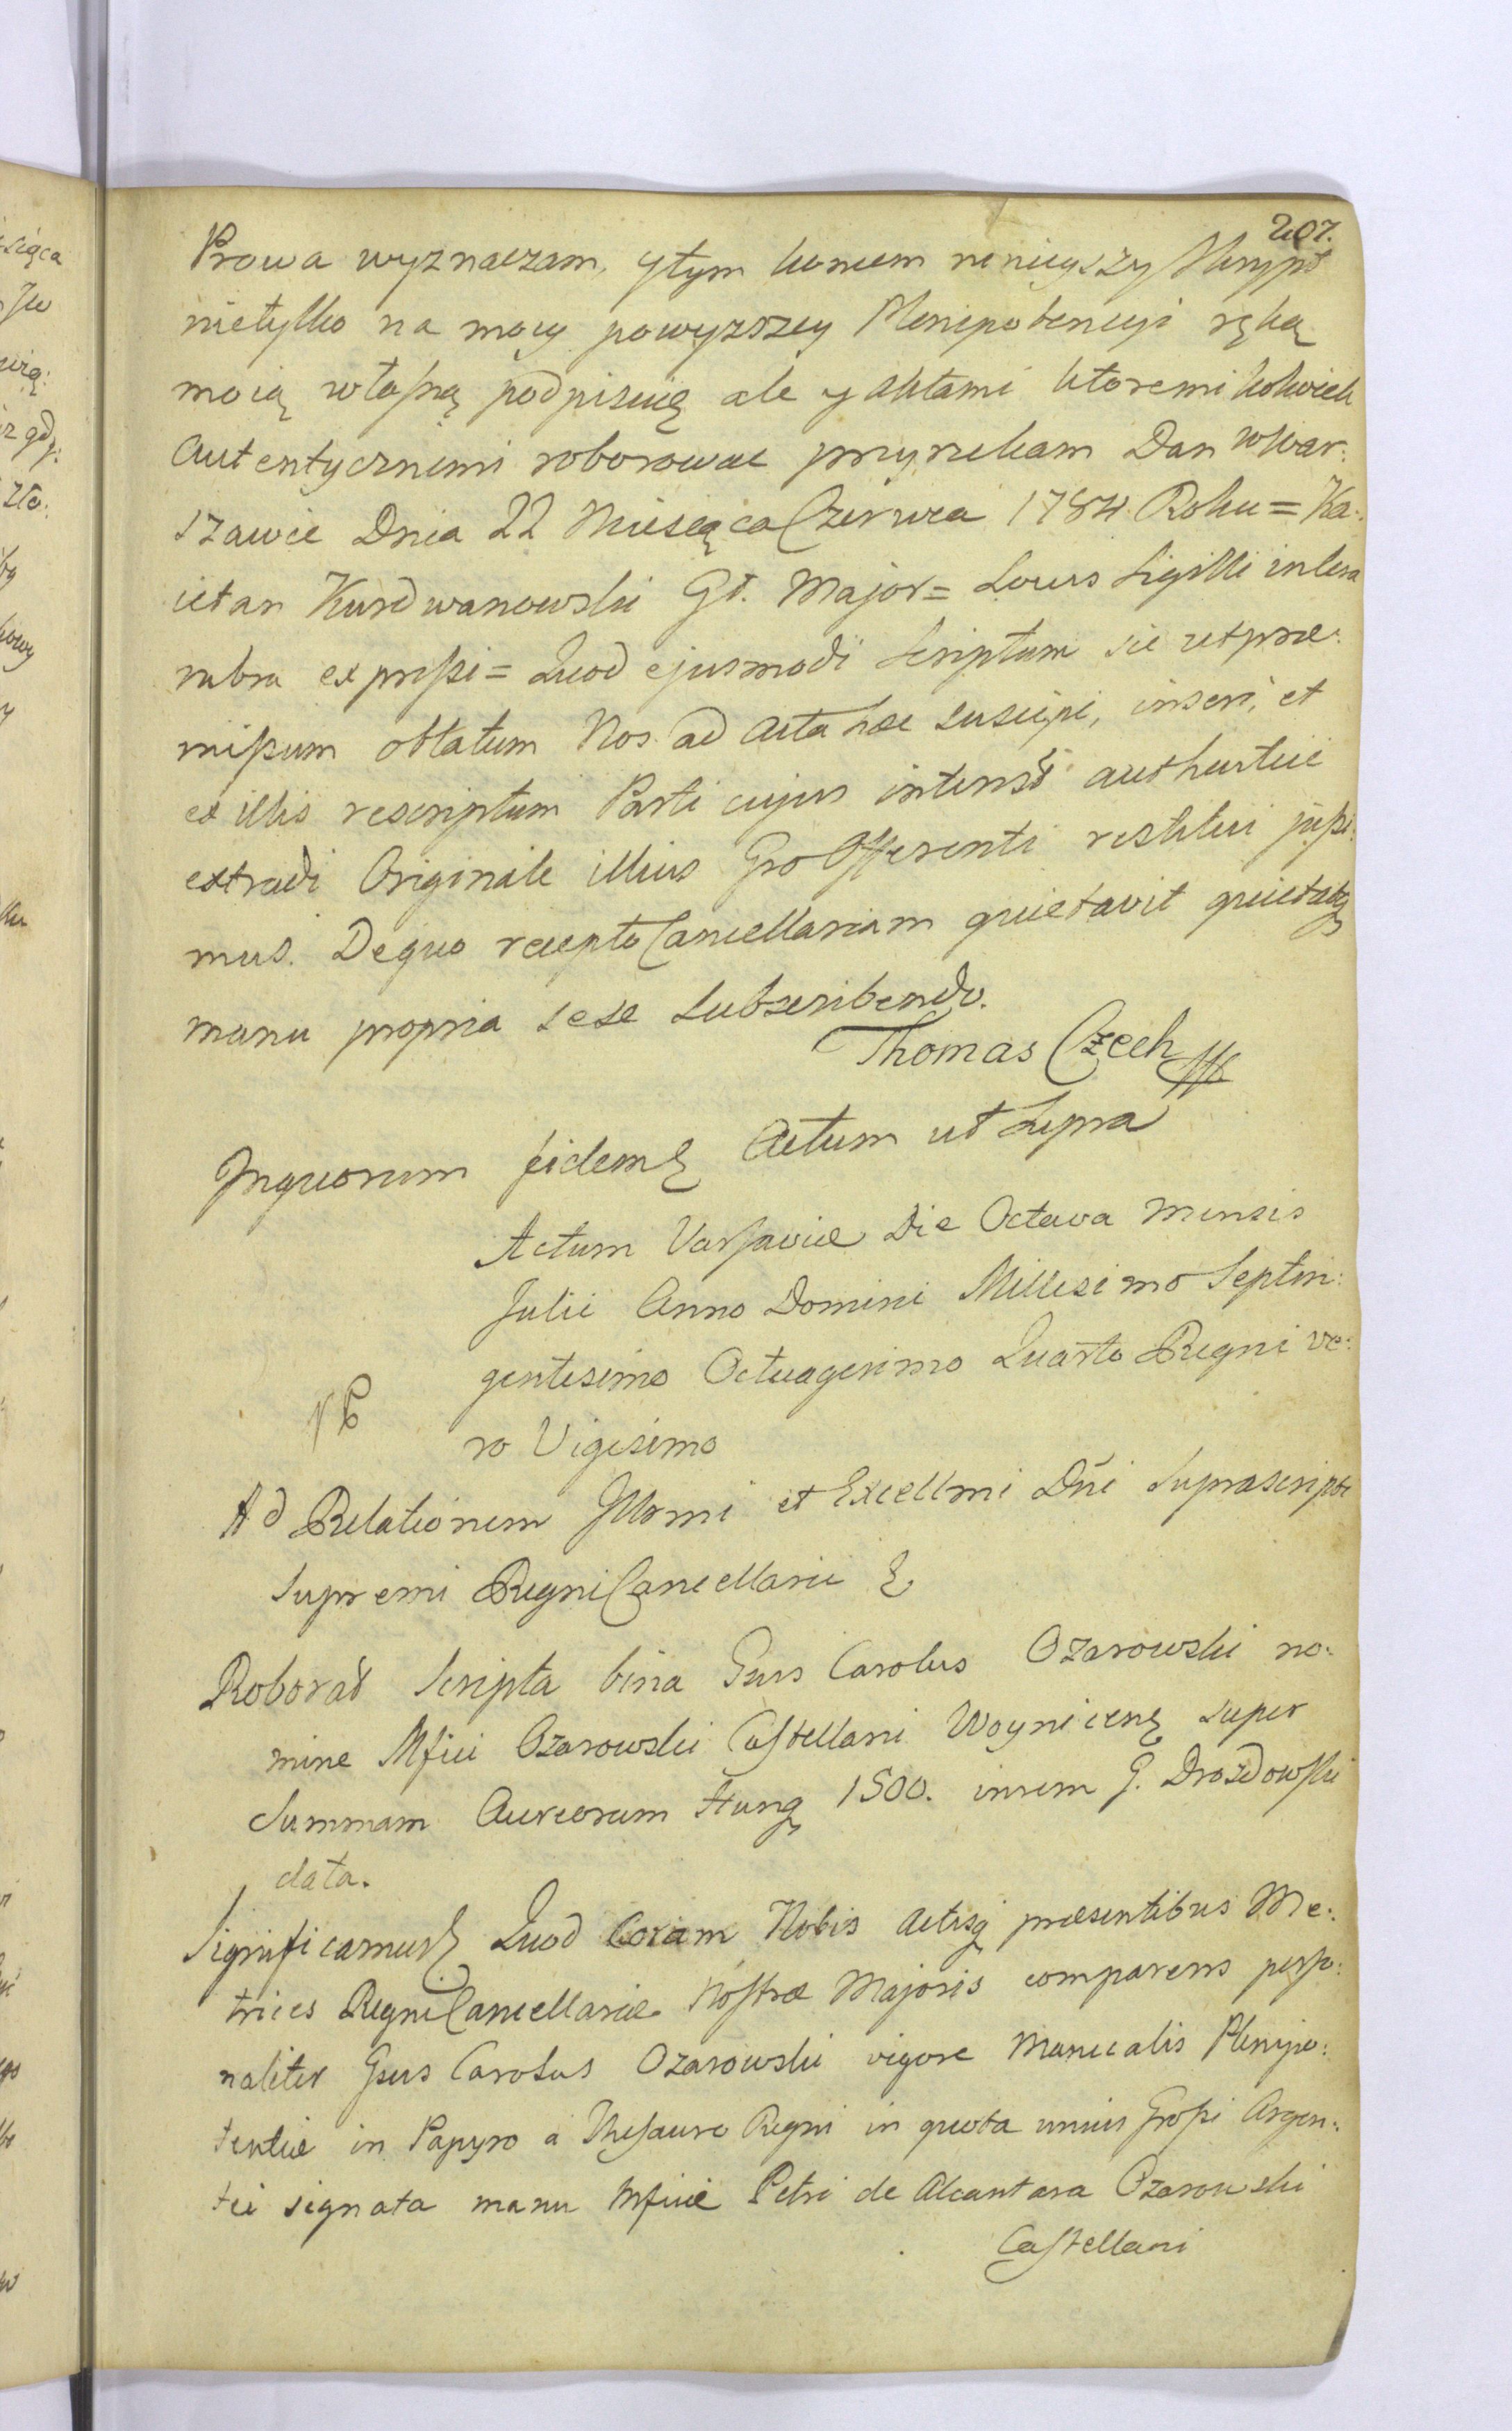 207.
Prawa wyznaczam, ytym koncem ninieyszy Skrypt
nietylko na mocy powyzszey Plenipotencyi ręką
moią własną podpisuię ale y aktami ktoremi kolwiek
autentycznemi roborowac przyrzekam Dan wWar:
szawie Dnia 22 Miesiąca Czerwca 1784 Roku = Ka:
ietan Kurdwanowski Gł. Major = Locus Sigilli in cera
rubra expreſsi = Quod ejusmodi Scriptum sic ut præ:
miſsum oblatum Nos ad acta hæc suscipi, inseri, et
ex illis rescriptum Parti cujus interest authentice
extradi Originale illius Gro Offerenti restitui juſsi:
mus. Dequo recepto Cancellariam quietavit quietatq
manu propria sese Subscribendo.
Thomas Czech
Inquorum fidem Actum ut Supra
Actum Varſaviæ Die Octava Mensis
Julii Anno Domini Millesimo Septin:
gentesimo Octuagesimo Quarto Regni ve:
ro Vigesimo
Ad Relationem Illmi et Excellmi Dni Suprascripti
Supremi Regni Cancellarii
Roborat Scripta bina Gsus Carolus Ozarowski no:
mine Mfici Ozarowski Caſtellani Woynicens super
Summam Aureorum Hung 1500. inrem G. Drozdowſki
data.
Significamus Quod Coram Nobis Actisq præsentibus Me:
trices Regni Cancellariæ Noſtræ Majoris comparens perſo:
naliter Gsus Carolus Ozarowski vigore Manualis Plenipo:
tentiæ in Papyro a Theſauro Regni in quota unius Groſsi Argen:
tei signata manu Mfici Petri de Alcantara Ozarowski
Caſtellani